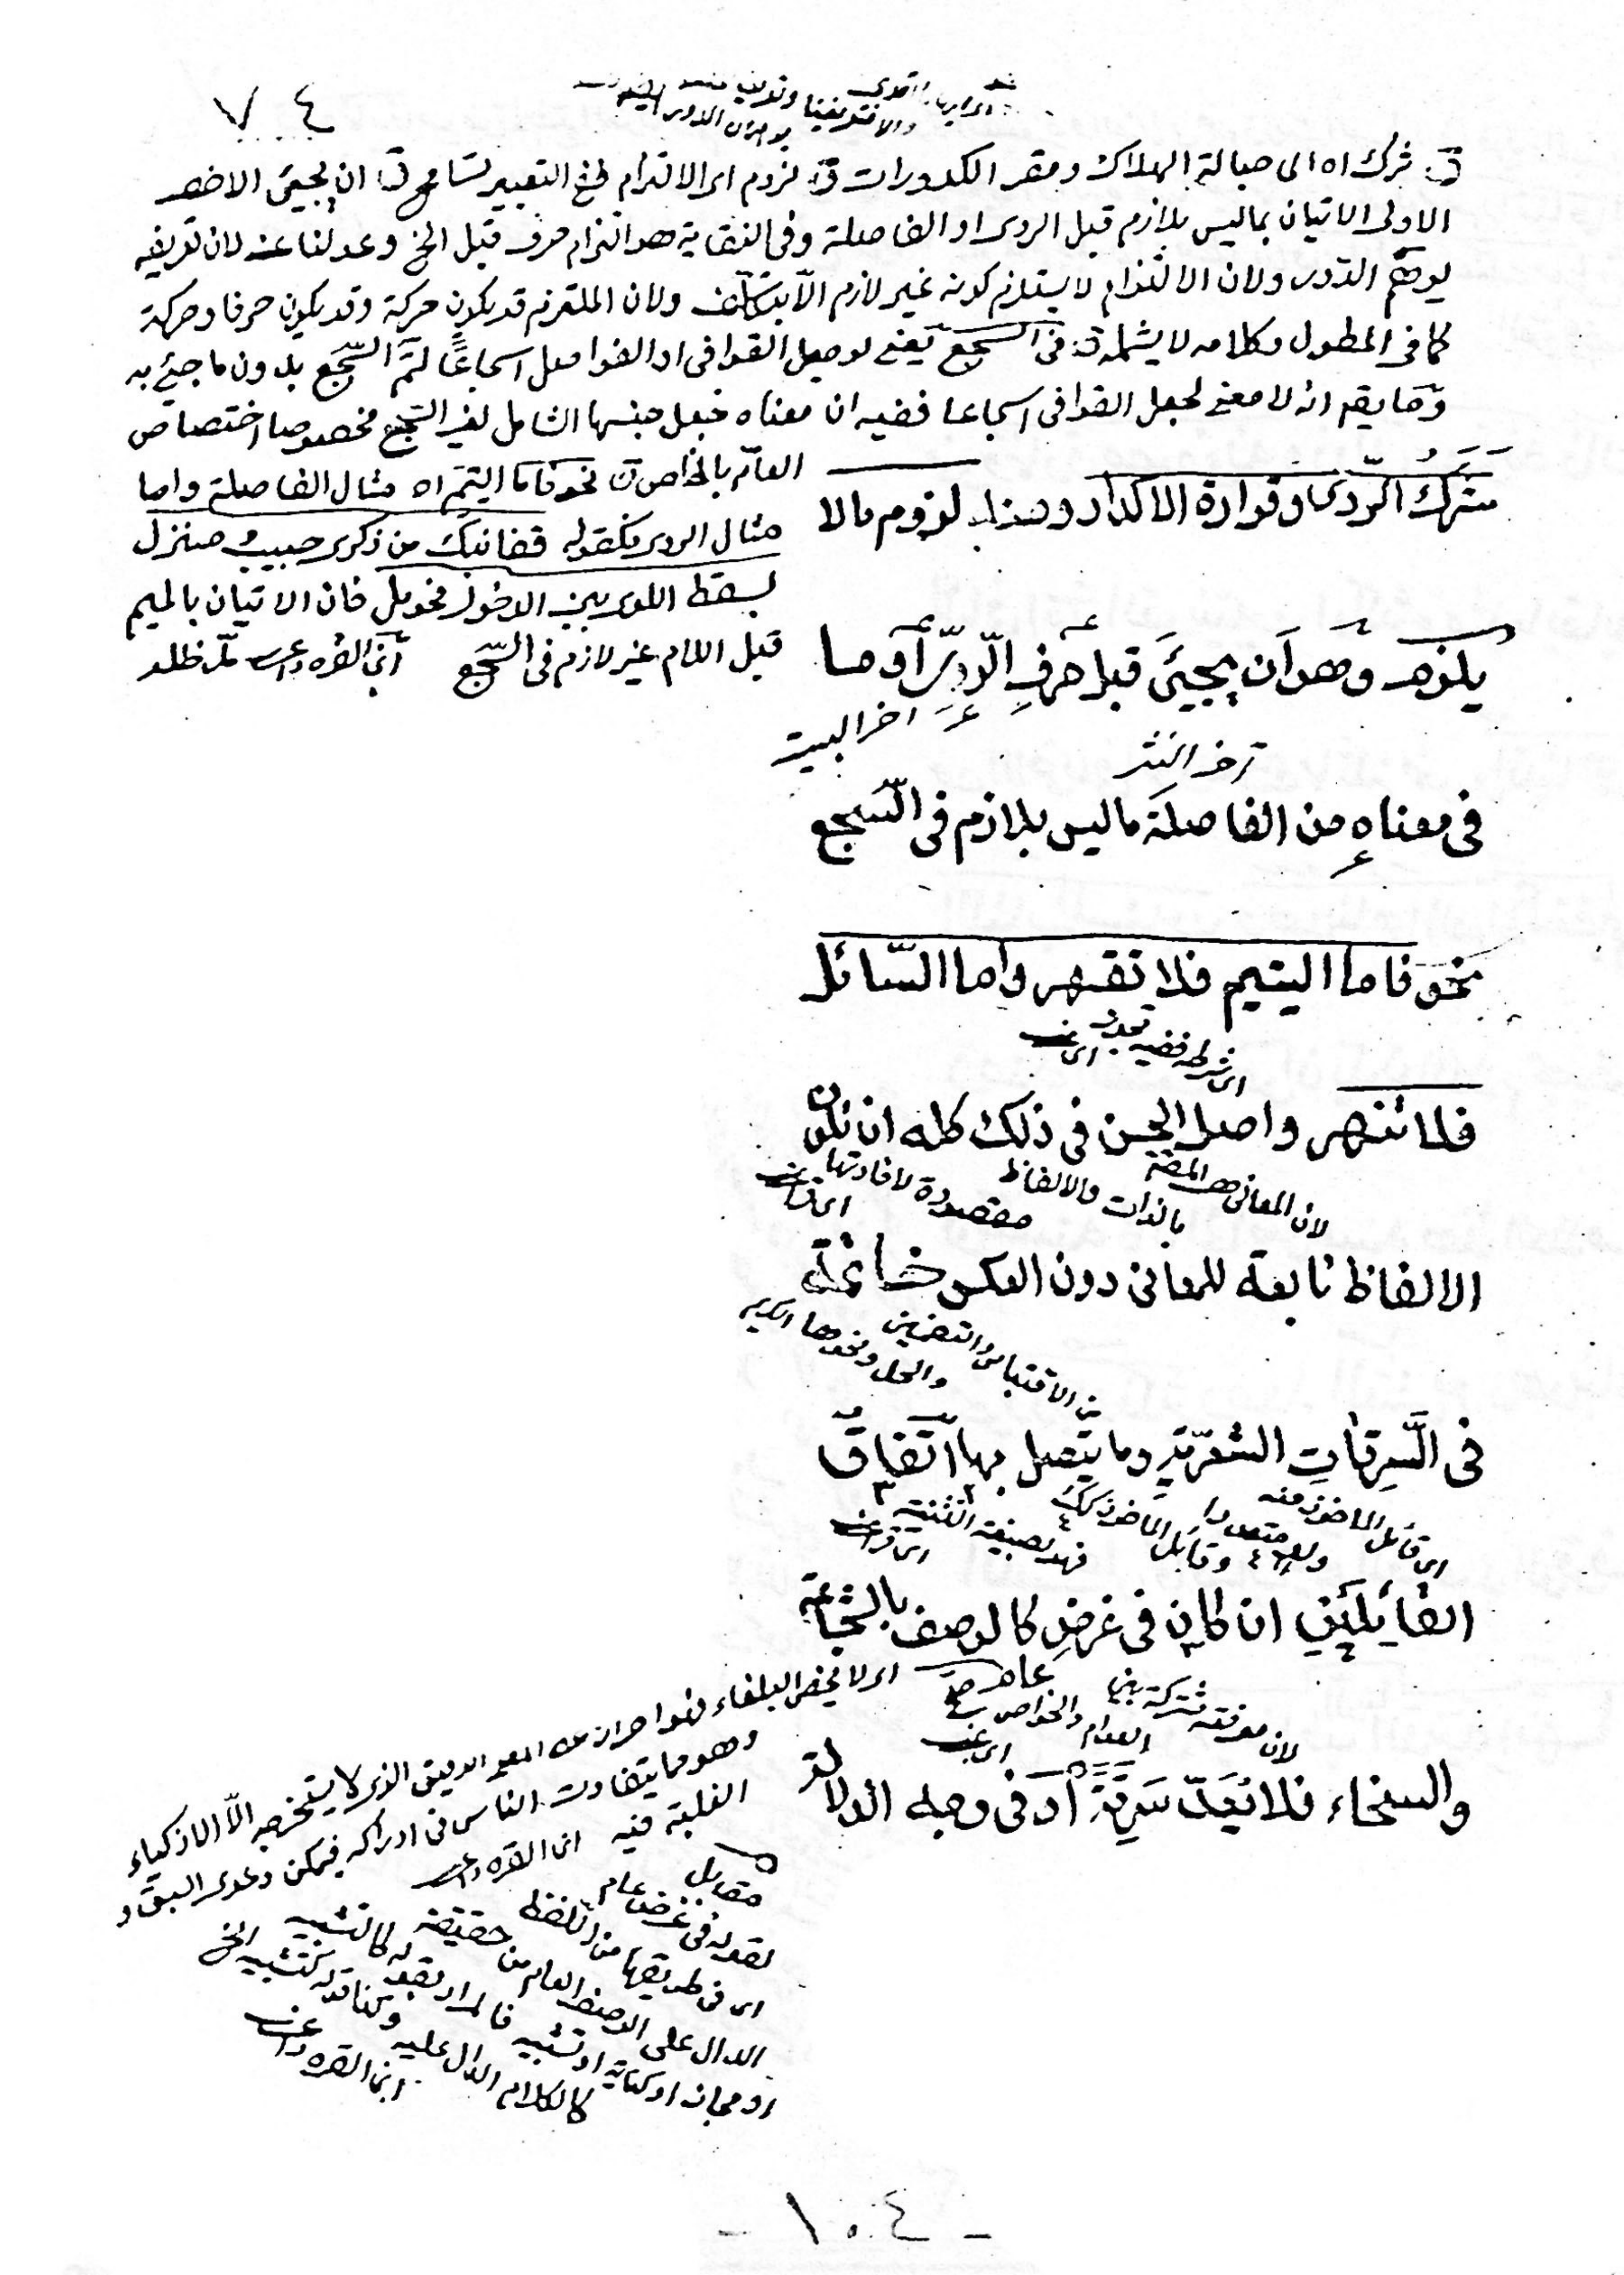 ٧٤
ق شرك اه الى حبالة الهلاك ومقر الكدورات ق لزوم اى الالتزام ففى التعبير تسامح ق ان يجيئ الاخصر
الاولى الاتيان بماليس بلازم قبل الروى او الفاصلة وفى النقاية هو التزام حرف قبل الخ وعدلنا عنه لان تعريفه
يوهم الدور ولان الالتزام لا يستلزم كونه غير لازم الا بتكلف ولان الملتزم قد يكون حركة وقد يكون حرفا وحركة
كما فى المطول وكلامه لا يشمله ق فى السجع يعنى لو جعل القوافى او الفواصل اسجاعًا لتم السجع بدون ما جئ به
وما يقم انه لا معنى لجعل القوافى اسجاعا ففيه ان معناه جعل جنسها الشامل لغير السجع مخصوصا اختصاص
العام بالخاص ق نحو فاما اليتيم اه مثال الفاصلة واما
مثال الروى فكقوله قفا نبك من ذكرى حبيب ومنزل
بسقط اللوى بين الدخول فحومل فان الاتيان بالميم
قبل اللام غير لازم فى السجع ابن القره داغى مد ظله
شَرَكُ الرّدى وقرارة الاكدار ومنه لزوم مالا
يلزم وهو ان يجيئَ قبل حرفِ الرّوِىِّ او ما
اخر البيت
اخر النثر
فى معناه من الفاصلة ماليس بلازم فى السّجع
نحو فاما اليتيم فلا تقهر واما السّائل
اى شرطه ففيه تجوز
فلا تنهر واصل الحسن فى ذلك كله ان تكون
لان المعانى هى المقصودة
بالذات والالفاظ مقصودة لافادتها
الالفاظ تابعة للمعانى دون العكس خاتمة
من الاقتباس والتضمين
والحل ونحوها
فى السَّرِقاتِ الشعرّيةِ وما يتّصل بها اتّفاقُ
اى قائل الماخوذ منه
ولو متعددا وقائل الماخوذ كك
فهو بصيغة التثنية
القائِلَيْنِ ان كان فى غرضٍ كالوصف بالشجاعة
لان معرفته مشتركة بين
العوام والخواص
والسخاء فلا يُعَدّ سَرِقَةً او فى وجه الدلالة
اى لا يخص البلغاء فهو احتراز عن المعنى الدقيق الذى لا يستخرجه الّا الاذكياء
وهو مما يتفاوت الناس فى ادراكه فيمكن دعوى السبق و
الغلبة فيه ابن القره داغى
مقابل
لقوله فى غرض عام
اى فى طريقها من اللفظ
الدال على الوصف العام من حقيقة
او مجاز او كناية او تشبيه فالمراد بقوله كالتشبيه
كالكلام الدال عليه وكذا قوله كتشبيه الخ
ابن القره داغى
- ١٠٤ -